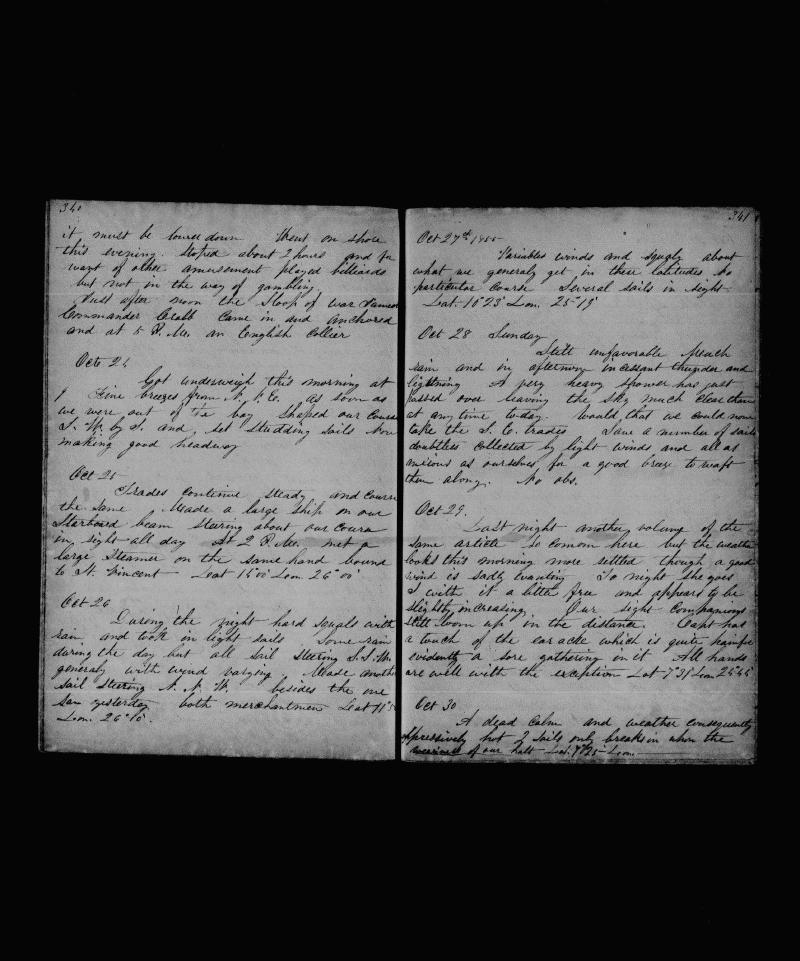 340
it must be
down Went on shore
this evening. Stoped about 2 hours and for
want of other amusement played billiards
but not in the way of gambling.
Just after noon the Sloop of war
Commander Crabb Came in and anchored
and at 5 P.M. an English Collier
Oct. 24
Got underweigh this morning at
9 Fine breezes from N.N.E. as soon as
we were out of the bay shaped our Course
S. W. by S. and set Studding sails Now
making good headway
Oct 25
Trades continue steady and Course
the same Made a large ship on our
Starboard beam steering about our Course
in sight all day At 2 P.M. met a
large Steamer on the same hand bound
to St. Vincent Lat 15°00' Lon. 26°00'
Oct 26
During the night hard squals with
rain and took in light sails Some rain
during the day but all sail steering S.S.W.
generaly with wind varying Made another
sail steering N.N.W. besides the one
saw yesterday both merchantmen Lat 11°
Lon. 26°10'
341
Oct 27th 1855
Variables winds and squaly about
what we generaly get in these latitudes No
particular Course Several sails in sight
Lat. 10°23' Lon. 25°19'
Oct 28 Sunday
Still unfavorable Much
rain and in afternoon incessant thunder and
lightning A very heavy shower has just
passed over leaving the sky much clearer than
at any time today. Would that we could now
take the S. E. trades Saw a number of sails
doubtless collected by light winds and all as
anxious as ourselves for a good breeze to waft
them along. No obs.
Oct 29.
Last night another volume of the
same article so comon here but the weather
looks this morning more settled though a good
wind is sadly wanting To night she goes
S with it a little free and appears to be
slightly increasing Our sight Companions
still loom up in the distance. Capt has
a touch of the which is quite painful
evidently a sore gathering in it All hands
are well with the exception Lat 7°31' Lon 25°45'
Oct 30
A dead Calm and weather consequently
oppressively hot 2 sails only breaks in upon the
of our halt Lat. 7°25' Lon.